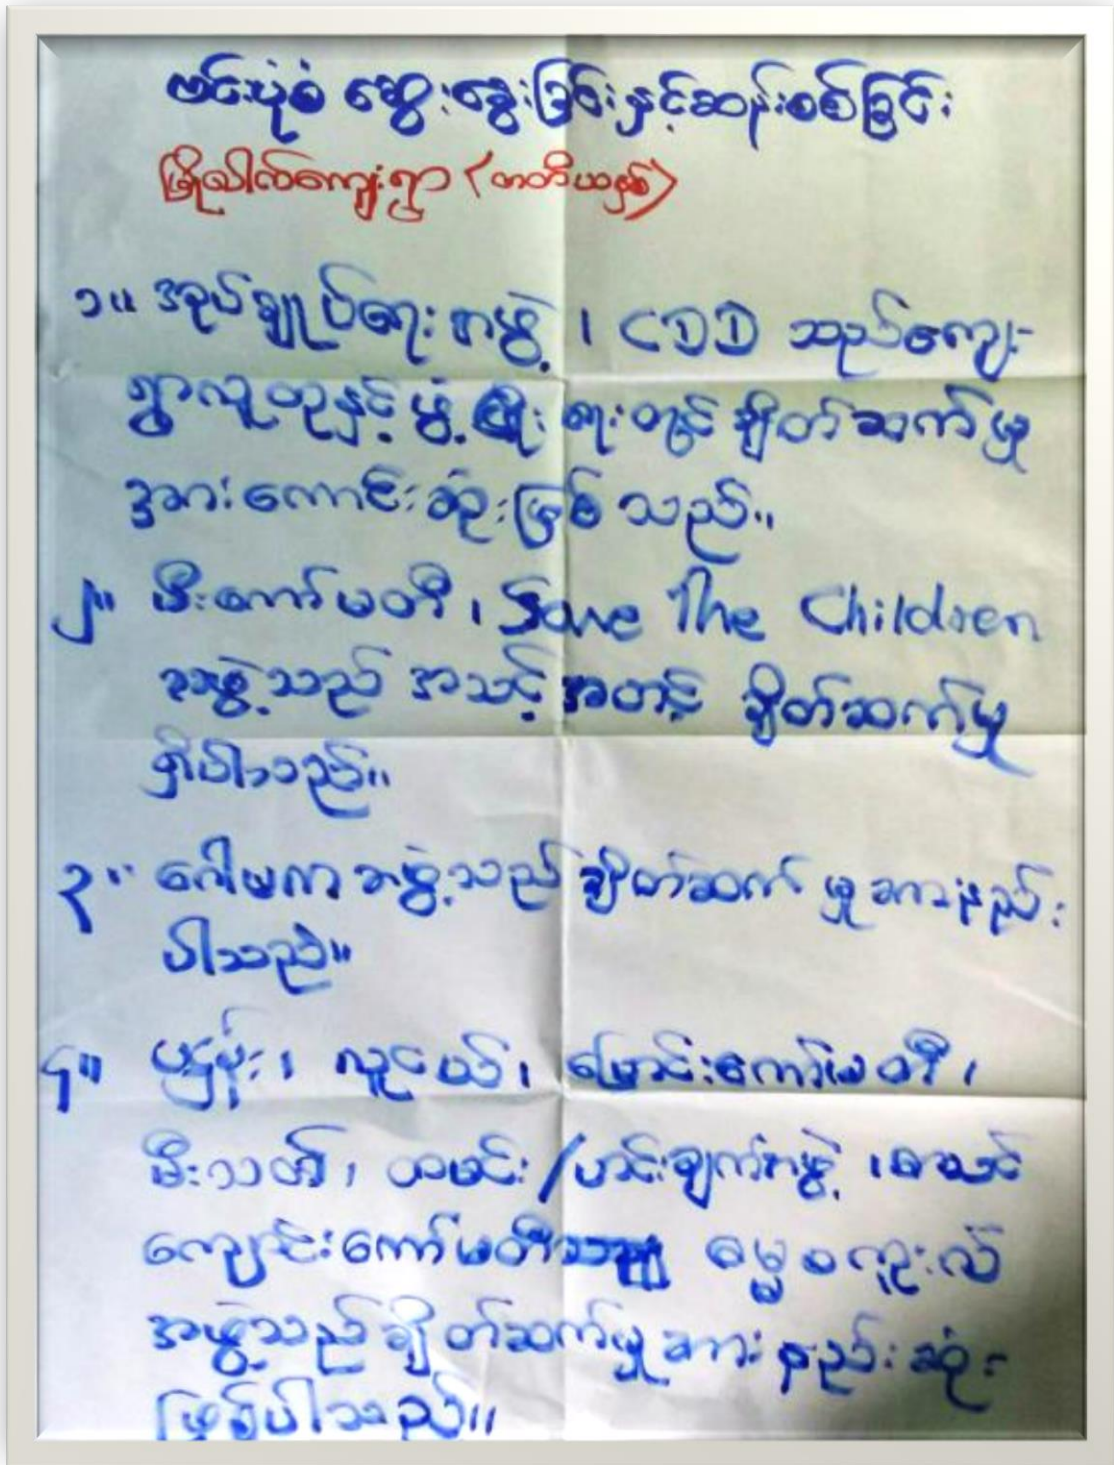 ဗင်းပုံစံ ဆွေးနွေးခြင်းနှင့်ဆန်းစစ်ခြင်း
မြို့ပေါက်ကျေးရွာ (တတိယနှစ်)
၁။ အုပ်ချုပ်ရေးအဖွဲ့၊ CDD သည်ကျေး-
ရွာလူထုနှင့် ဖွံ့ဖြိုးရေးတွင် ချိတ်ဆက်မှု
အားကောင်းဆုံးဖြစ်သည်။
၂။ မီးကော်မတီ၊ Save The Children
အဖွဲ့သည် အသင့်အတင့် ချိတ်ဆက်မှု
ရှိပါသည်။
၃။ ဂေါပကအဖွဲ့သည် ချိတ်ဆက်မှုအားနည်း
ပါသည်။
၄။ ပဋ္ဌာန်း၊ လူငယ်၊ မြောင်းကော်မတီ၊
မီးသတ်၊ ထမင်း/ဟင်းချက်အဖွဲ့၊ စာသင်
ကျောင်းကော်မတီ ဓမ္မစကူးလ်
အဖွဲ့သည်ချိတ်ဆက်မှုအားနည်းဆုံး
ဖြစ်ပါသည်။